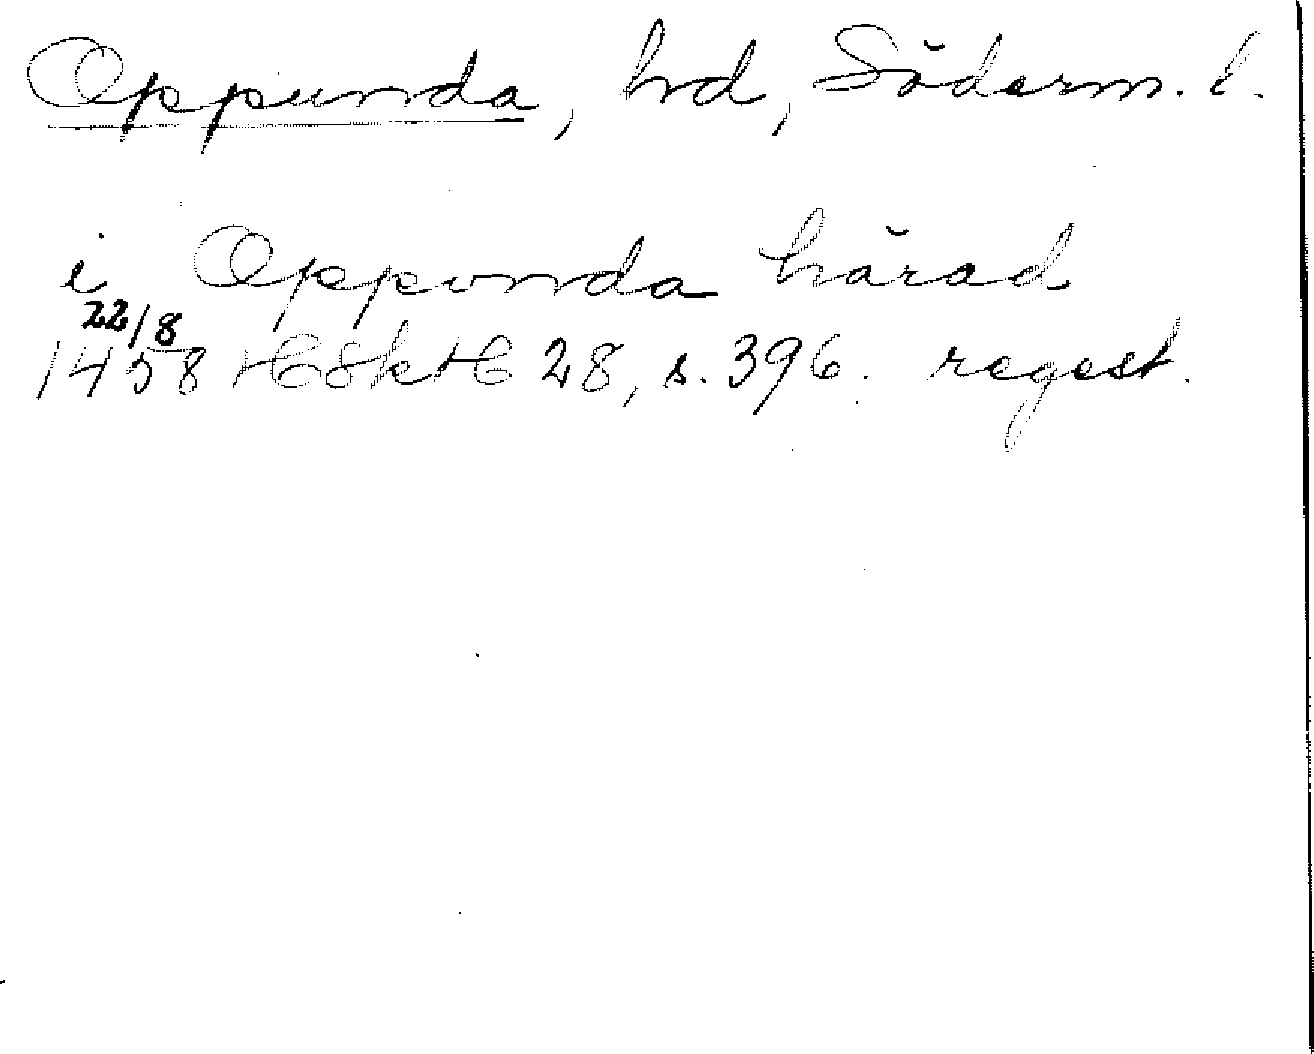 Oppunda, hd, Söderm. l.
i Opponda härad
22/8
1458 HSkH 28, s. 396. regest.